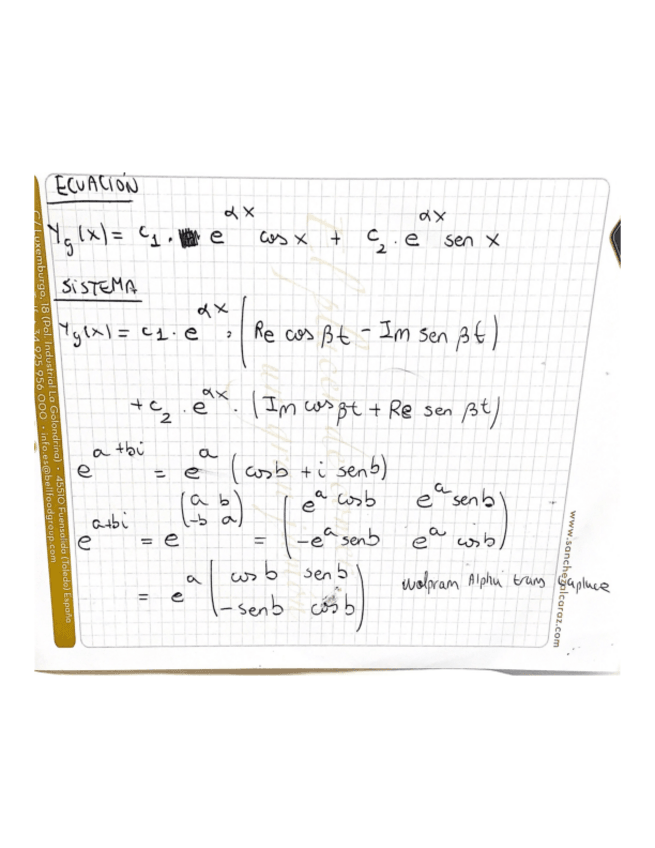 ECUACIÓN
Yg(x) = c1 · e^αx cos x + c2 · e^αx sen x
SISTEMA
Yg(x) = c1 · e^αx · (Re cos βt - Im sen βt)
+ c2 · e^αx · (Im cos βt + Re sen βt)
e^a+bi = e^a (cos b + i sen b)
e^a+bi = e^(a b -b a) = (e^a cos b e^a sen b -e^a sen b e^a cos b)
= e^a (cos b sen b -sen b cos b) wolpram Alphu trans
C/ Luxemburgo, 18 (Pol. Industrial La Golondrina) • 45510 Fuensalida (Toledo) España
34 925 956 000 • info.es@bellfoodgroup.com
www.sanchezalcaraz.com